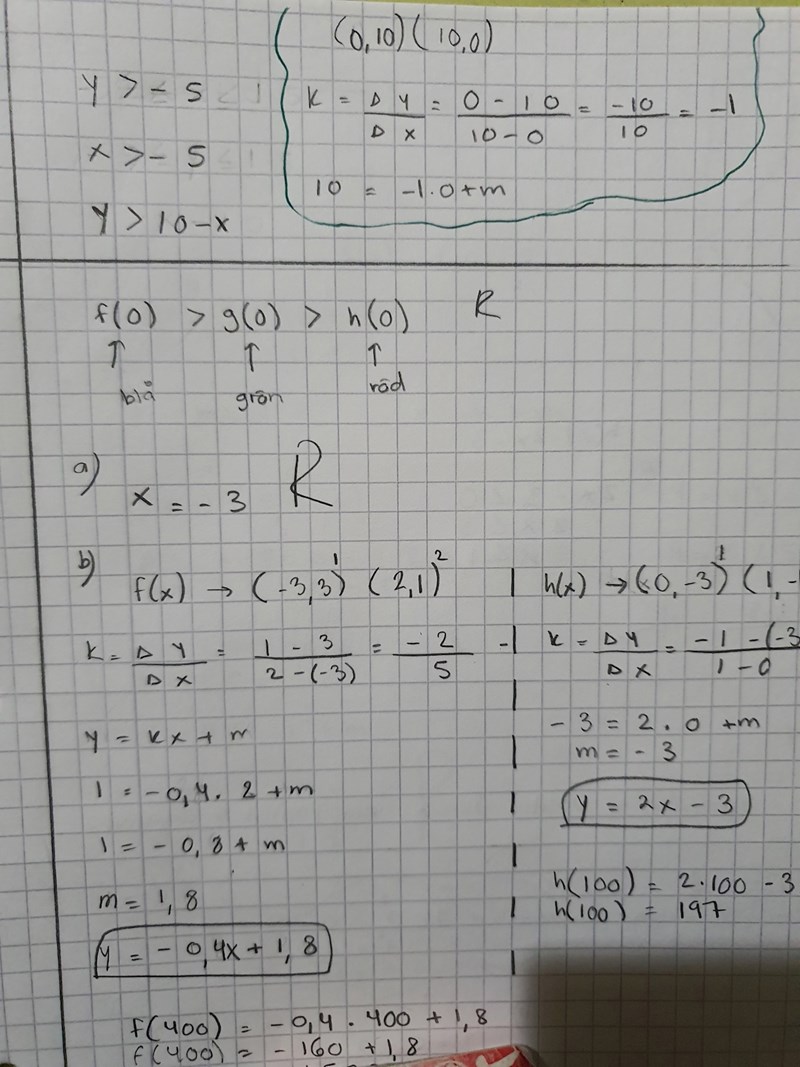 (0,10) (10,0)
y > - 5
K = Δy/Δx = (0 - 10)/(10 - 0) = -10/10 = -1
x > - 5
10 = -1·0+m
y > 10-x
f(0) > g(0) > h(0) R
↑ ↑ ↑
blå grön röd
a) x = - 3 R
b) f(x) → (-3,3)¹ (2,1)²
K = Δy/Δx = (1 - 3)/(2-(-3)) = -2/5
y = kx + m
1 = -0,4 · 2 + m
1 = -0,8 + m
m = 1,8
y = -0,4x + 1,8
f(400) = -0,4 · 400 + 1,8
f(400) = -160 + 1,8
h(x) → (0,-3)¹ (1,-
K = Δy/Δx = (-1-(-3)/(1-0)
-3 = 2 · 0 + m
m = - 3
y = 2x - 3
h(100) = 2·100 - 3
h(100) = 197